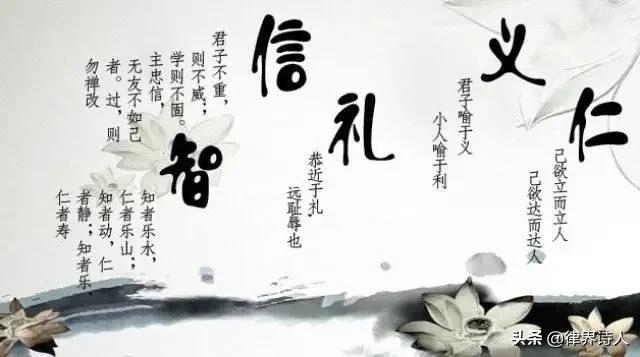 仁
己欲立而立人
己欲达而达人
义
君子喻于义
小人喻于利
礼
恭近于礼,
远耻辱也
信
君子不重,
则不威;
学则不固。
主忠信,
无友不如己
者。过,则
勿禅改
智
知者乐水,
仁者乐山;
知者动,仁
者静;知者乐,
仁者寿
头条 @律界诗人